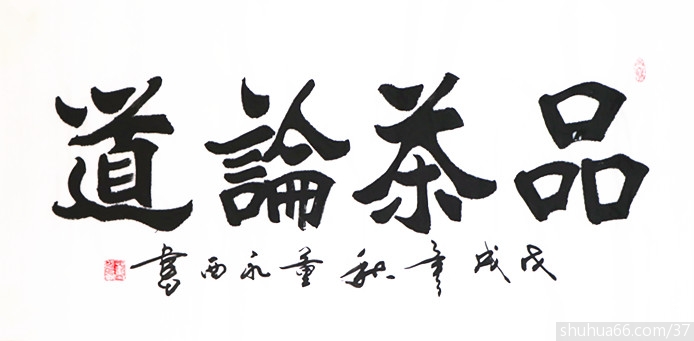 品茶論道
戊戌年秋董永西書
shuhua66.com/37